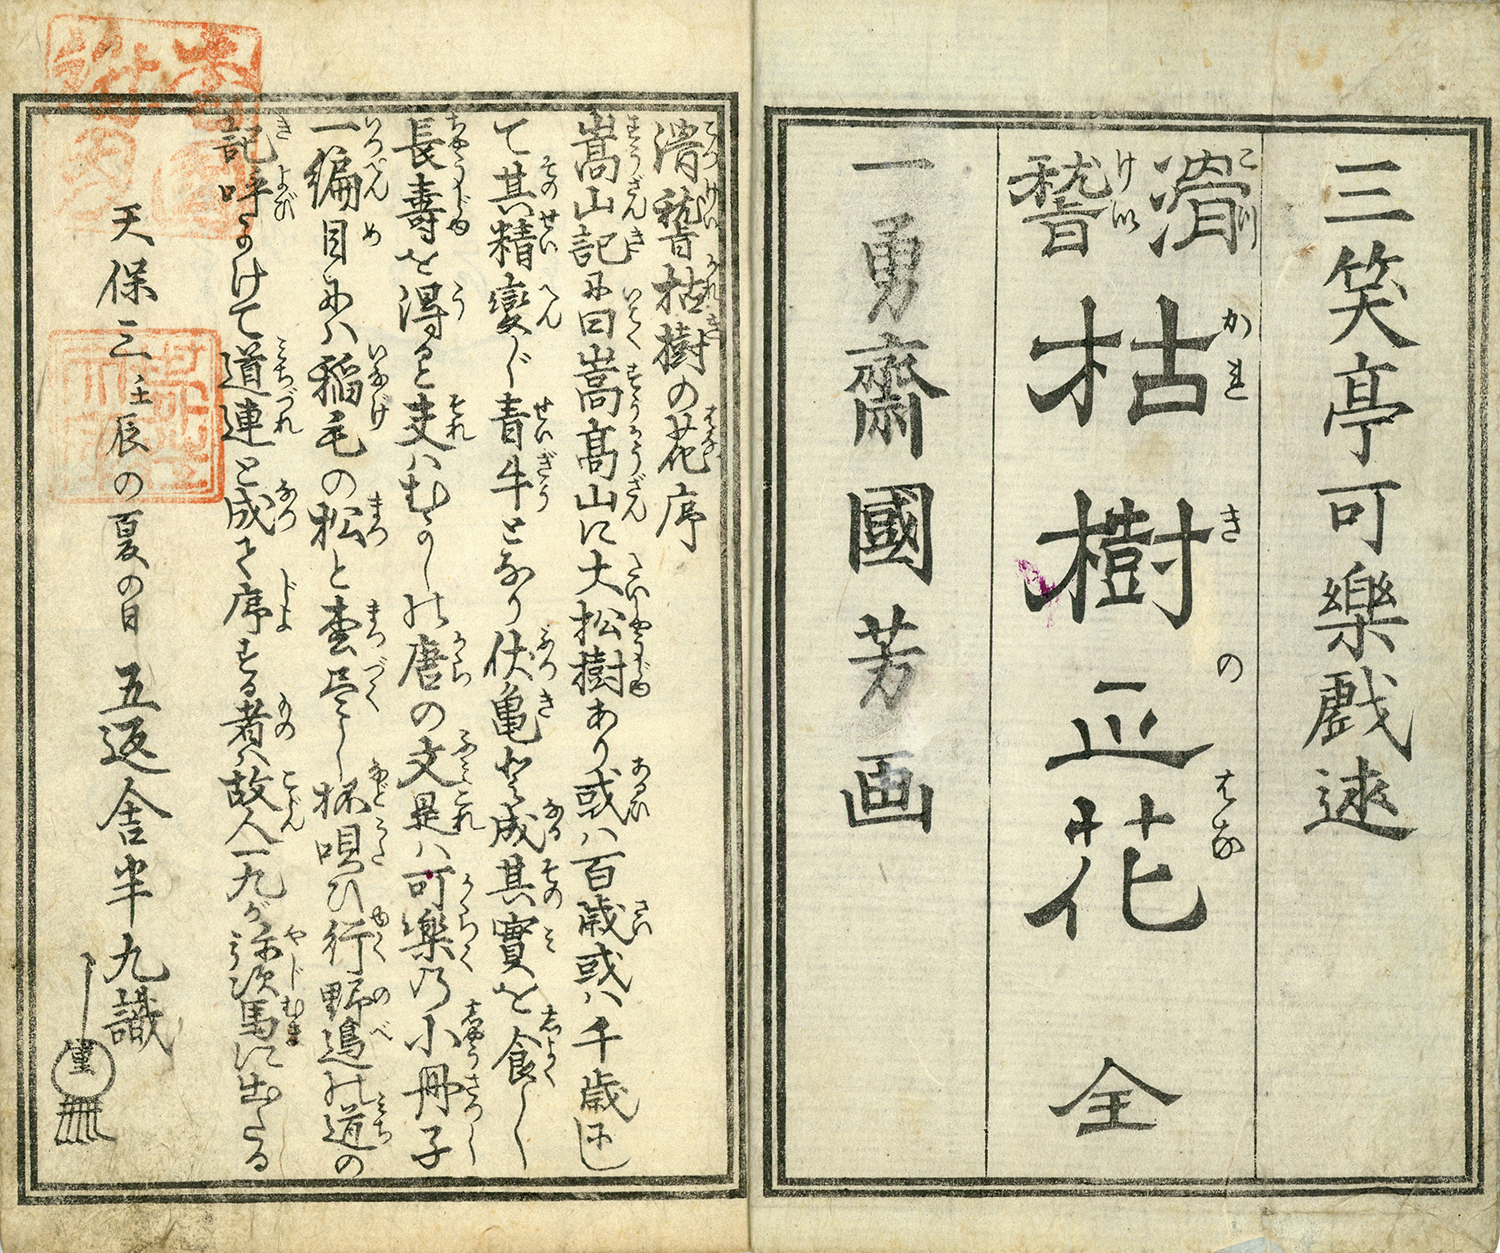 三笑亭可樂戯述
滑稽枯樹㱏花 全
こつけいかれきのはな
一勇齋國芳画
滑稽枯樹の花序
嵩山記に曰嵩高山に大松樹あり或ハ百歳或ハ千歳にし
て其精變じ青牛となり伏亀と成其實を食し
長壽を得ると夫ハむかしの唐の文是ハ可樂の小冊子
一編目にハ稲毛の松と
杯唄ひ行野邊の道の
記呼かけて道連と成て序する者ハ故人一九が弥次馬に出たる
天保三壬辰の夏の日 五返舎半九識